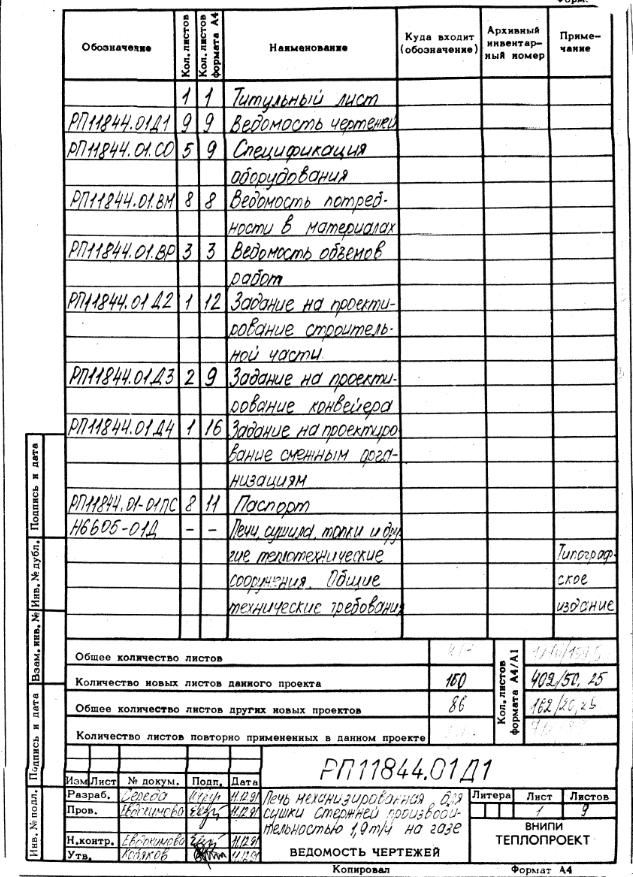 Форм.
Обозначение Кол. листов Кол. листов формата А4 Наименование Куда входит (обозначение) Архивный инвентарный номер Примечание
1 1 Титульный лист
РП11844.01Д1 9 9 Ведомость чертежей
РП11844.01.СО 5 9 Спецификация
оборудования
РП11844.01.ВМ 8 8 Ведомость потреб-
ности в материалах
РП11844.01.ВР 3 3 Ведомость объемов
работ
РП11844.01Д2 1 12 Задание на проекти-
рование строитель-
ной части
РП11844.01Д3 2 9 Задание на проекти-
рование конвейера
РП11844.01Д4 1 16 Задание на проектиро
вание смежным орга-
низациям
РП11844.01-01ПС 8 11 Паспорт
Н6605-01Д – – Печи, сушила, топки и дру
гие теплотехнические Типограф-
сооружения. Общие ское
технические требования издание
Общее количество листов
Количество новых листов данного проекта 160 402/50,25
Общее количество листов других новых проектов 86 162/20,25
Количество листов повторно примененных в данном проекте
Кол. листов формата А4/А1
РП11844.01Д1
Изм Лист № докум. Подп. Дата
Разраб. Середа 11.12.91 Печь механизированная для Литера Лист Листов
Пров. Евдокимова 11.12.91 сушки стержней производи- 1 9
тельностью 1,9 т/ч на газе
Н.контр. Евдокимова 11.12.91 ВНИПИ
Утв. 11.12.91 ВЕДОМОСТЬ ЧЕРТЕЖЕЙ ТЕПЛОПРОЕКТ
Копировал Формат А4
Инв. № подл. Подпись и дата Взам. инв. № Инв. № дубл. Подпись и дата